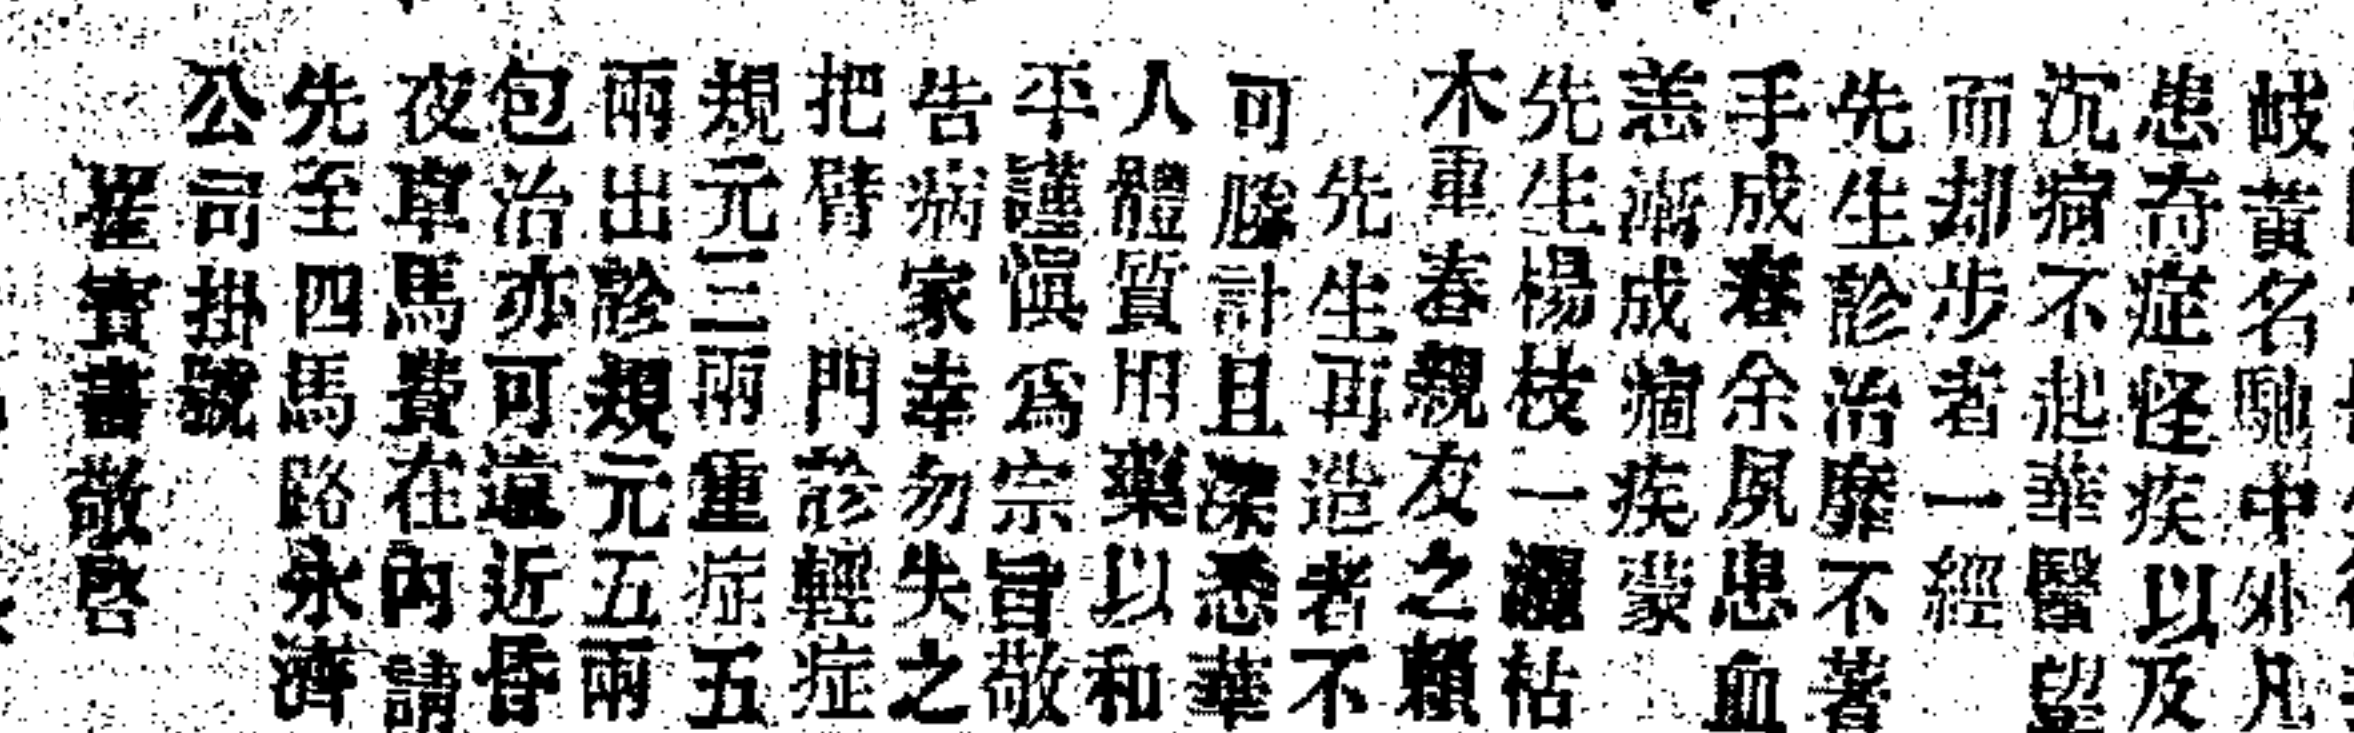 岐黃名馳中外凡
患奇症怪疾以及
沉痾不起華醫望
而却步者一經
先生診治靡不著
手成春余夙患血
恙漸成痼疾蒙
先生楊枝一灑枯
木重春親友之賴
先生再造者不
可勝計且深悉華
人體質用藥以和
平謹愼爲宗旨敬
告病家幸勿失之
把臂 門診輕症
規元三兩重症五
兩出診規元五兩
包治亦可遠近昏
夜車馬費在內請
先至四馬路永濟
公司掛號
翟寶書敬啓